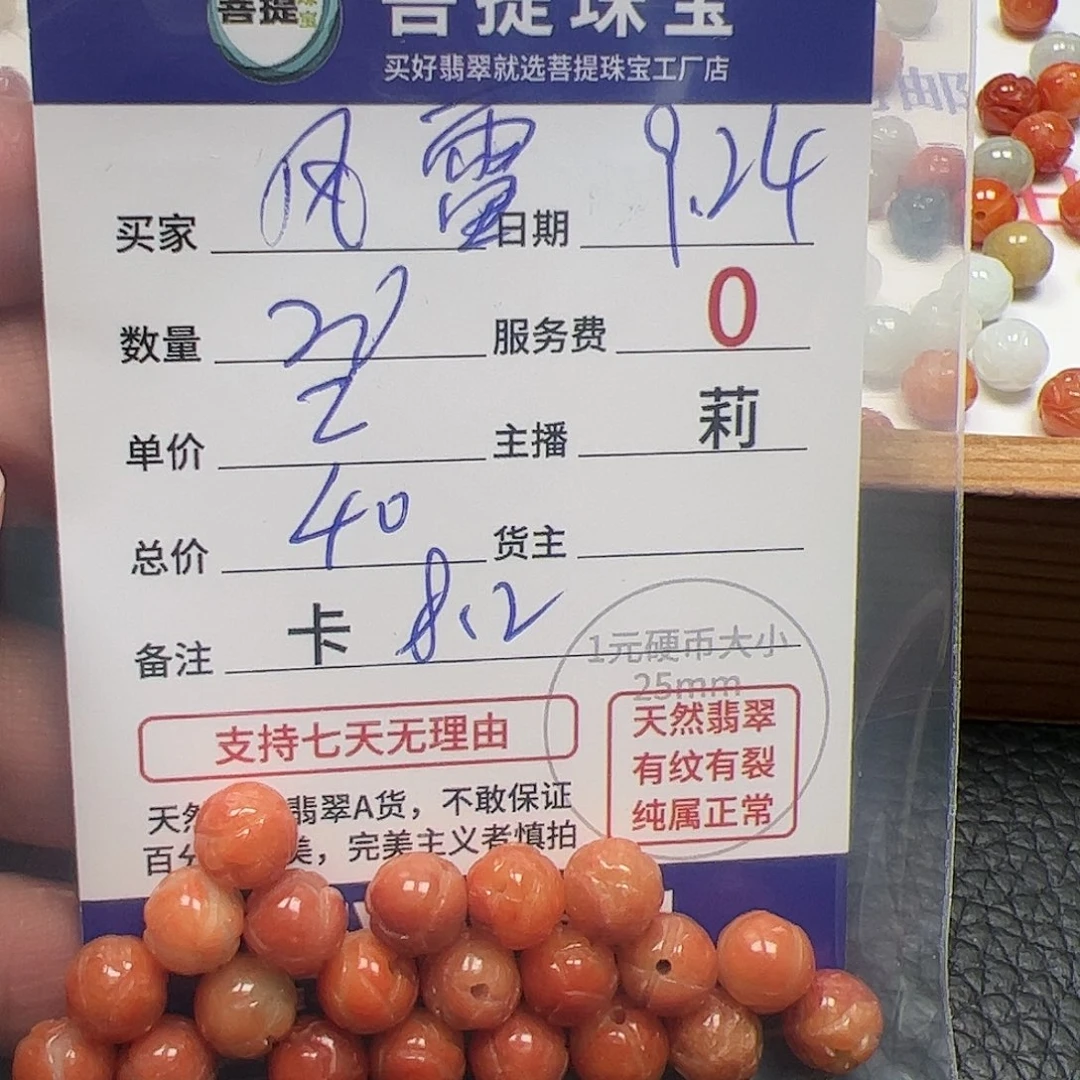 菩提珠宝
菩提珠宝
买好翡翠就选菩提珠宝工厂店
买家 风雷 日期 9.24
数量 服务费 0
单价 2 主播 莉
总价 40 货主
备注 卡 8.2
1元硬币大小
25mm
支持七天无理由
天然翡翠
有纹有裂
纯属正常
天然翡翠A货，不敢保证
百分美，完美主义者慎拍